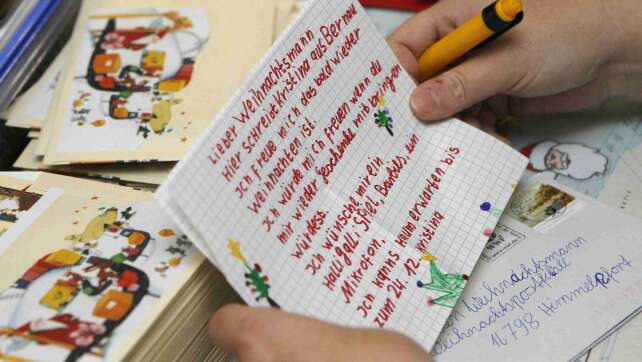 Lieber Weihnachtsmann
Hier schreibt kristina aus Bernau
Ich freue mich das bald wieder
Weihnachten ist.
Ich würde mich freuen wenn du
mir wieder geschenke mit bringen
würdest.
Ich wünsche mir ein
Halli galli Spiel, Barbies, ein
Mikrofon,
Ich kanns kaum erwarten bis
zum 24.12. kristina
Weihnachtsmann
Weihnachtspostfiliale
16798 Himmelpfort